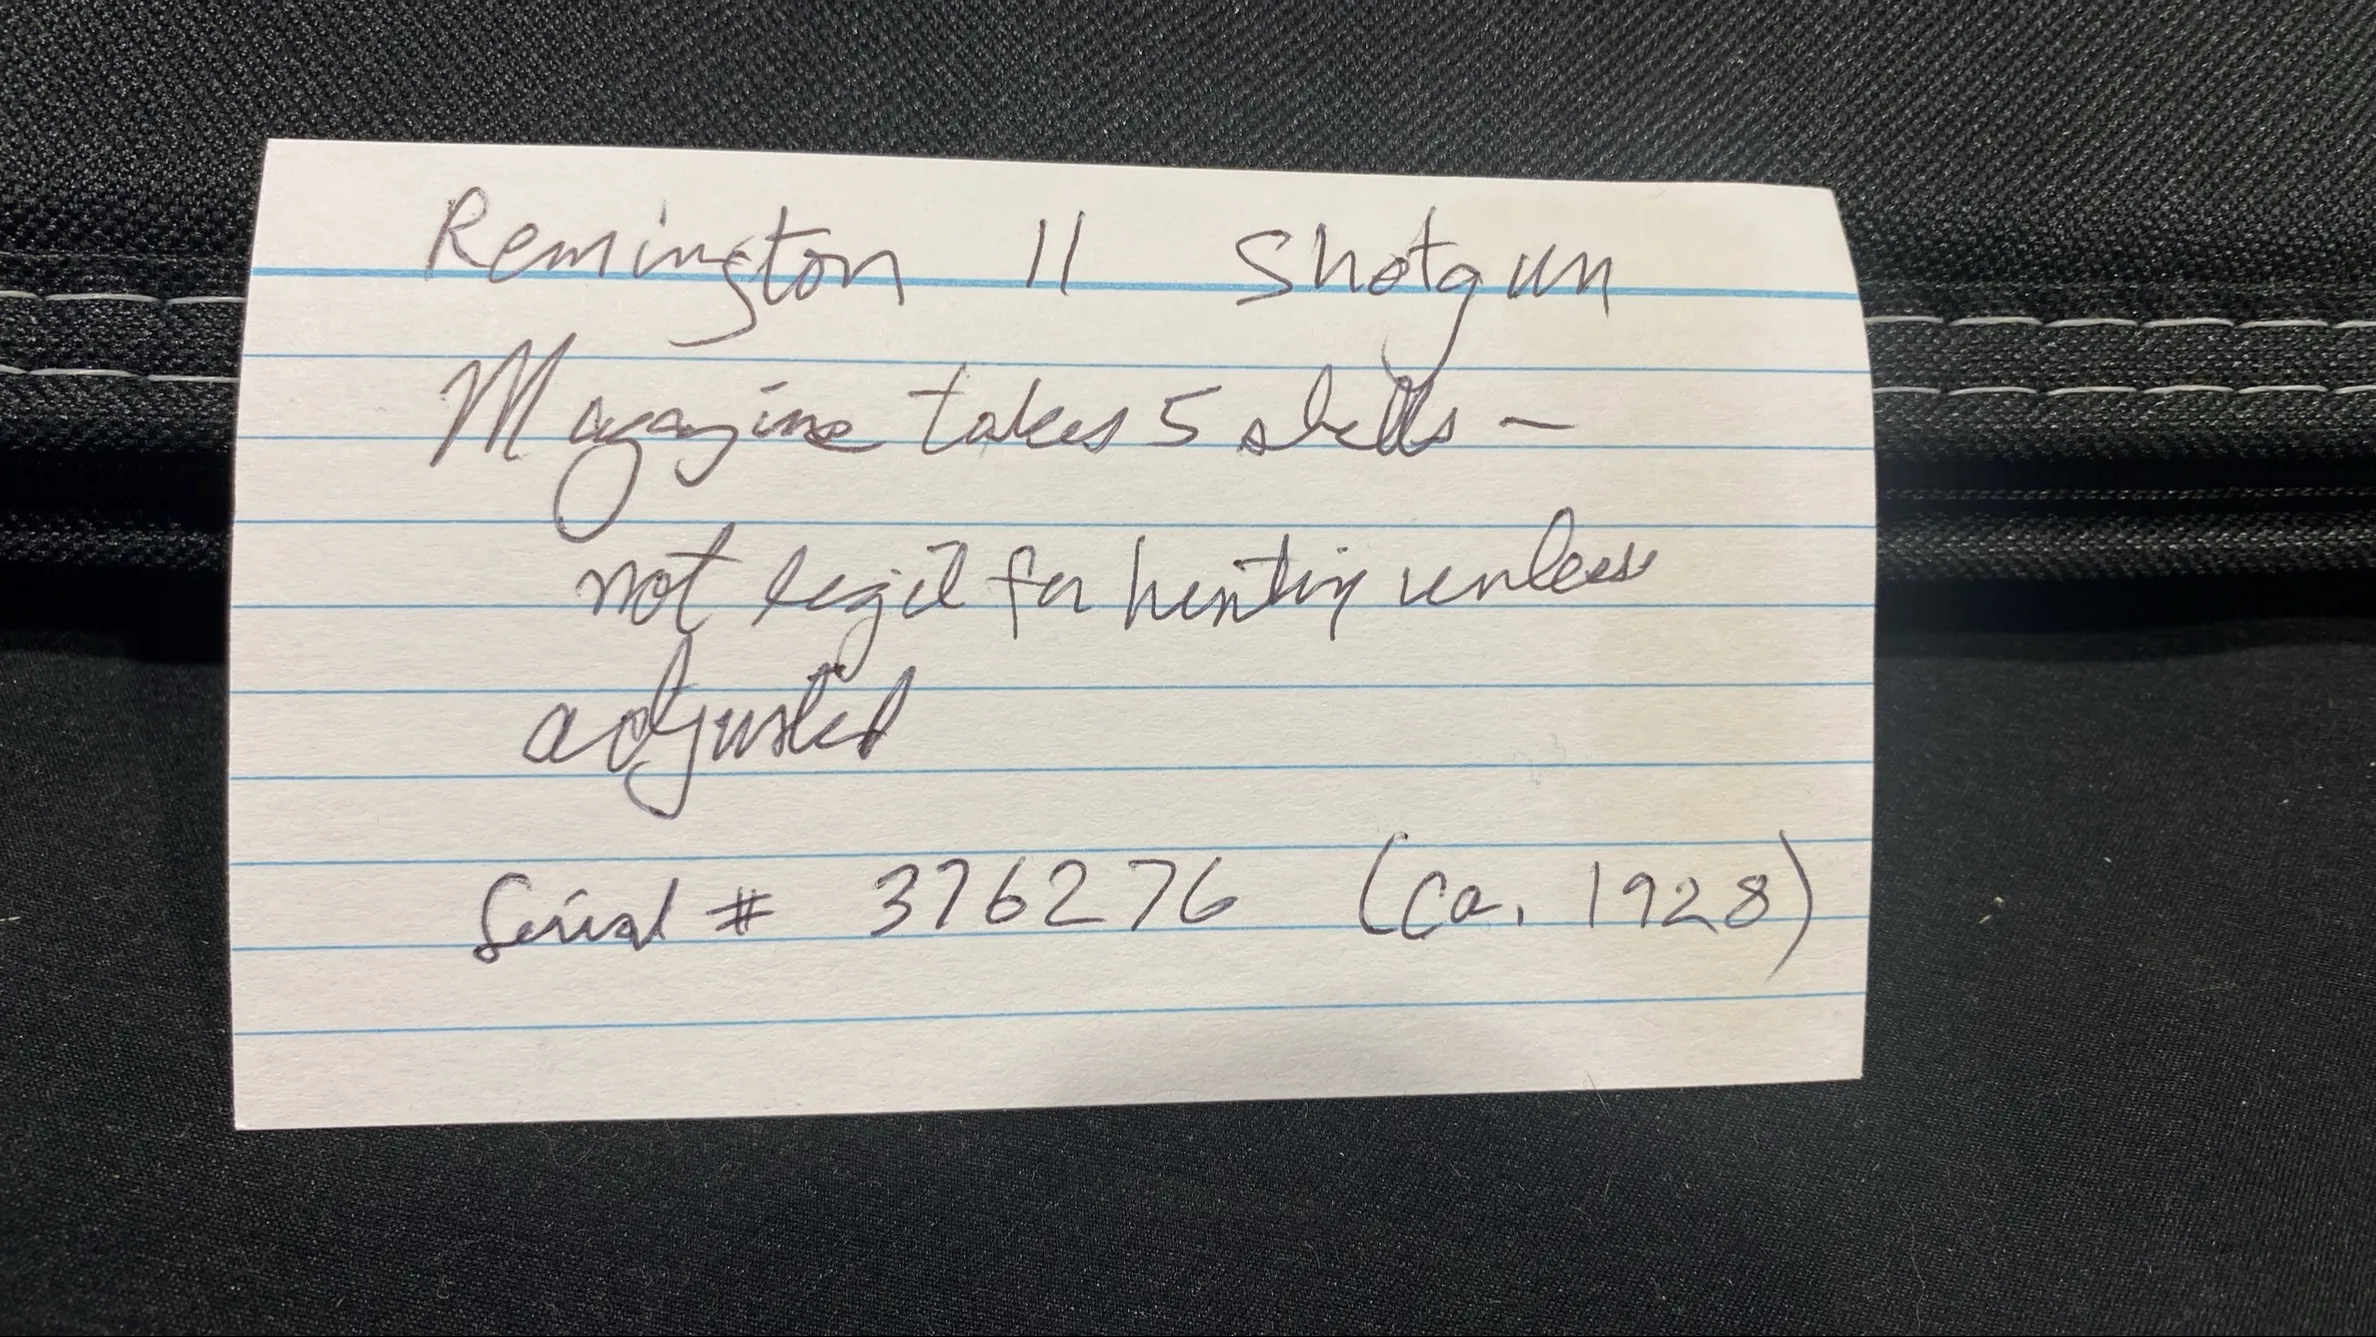 Remington 11 Shotgun
Magazine takes 5 shells -
not legal for hunting unless
adjusted
Serial # 376276 (ca. 1928)